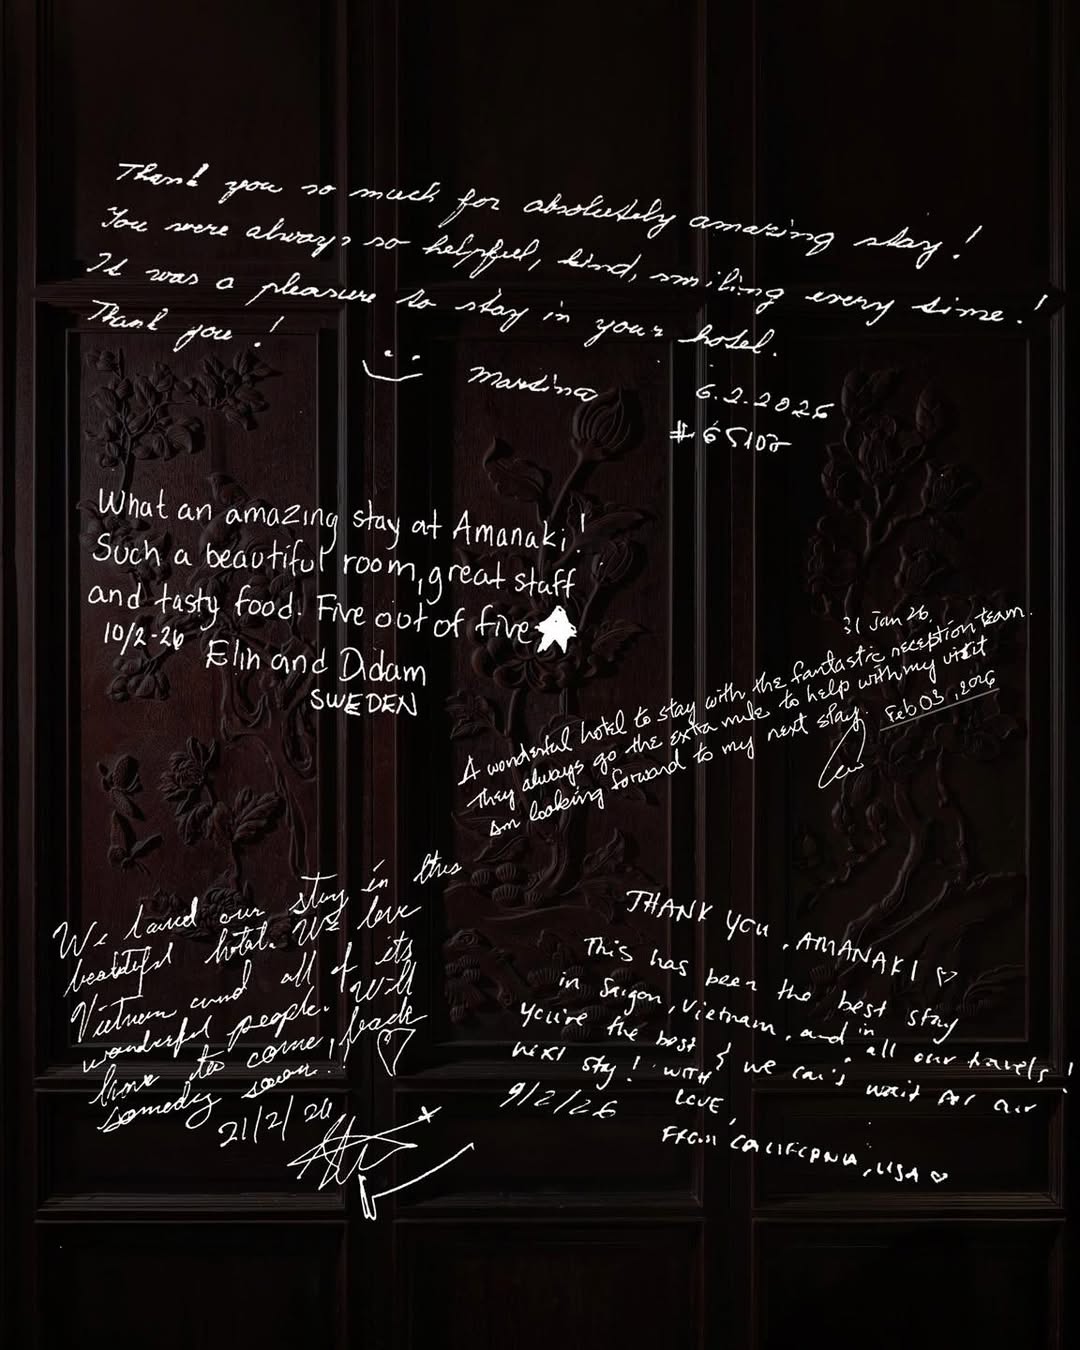 Thank you so much for absolutely amazing stay!
You were always so helpful, kind, smiling every time!
It was a pleasure to stay in your hotel.
Thank you!
Martina
6.2.2026
What an amazing stay at Amanaki!
Such a beautiful room, great staff
and tasty food. Five out of five
10/2-26
Elin and Didam
SWEDEN
31 Jan 26.
A wonderful hotel to stay with the fantastic reception team.
They always go the extra mile to help with my visit
Am looking forward to my next stay.
Feb 03, 2026
We loved our stay in this
beautiful hotel. We love
Vietnam and all of its
wonderful people. Will
love to come back
someday soon!!
21/2/26
THANK YOU, AMANAKI ♡
This has been the best stay
in Saigon, Vietnam, and in all our travels!
You're the best & we can't wait for our
next stay! WITH
LOVE,
9/2/26
FROM CALIFORNIA, USA ♡